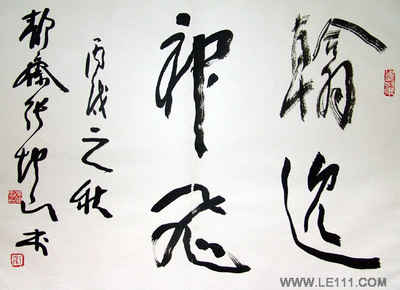 翰逸
神飞
丙戌之秋
张坤山书
WWW.LE111.COM